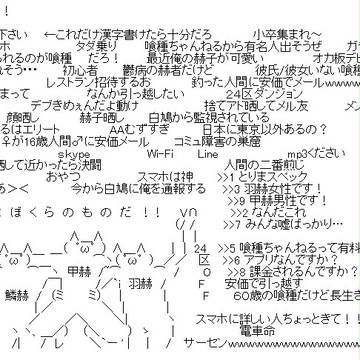 ！
下さい　←これだけ漢字書けたら十分だろ　小卒集まれ～
ホ　タダ乗り　喰種ちゃんねるから有名人出そうぜ　ガ
られるのが喰種　だろ！　最近俺の赫子が可愛い　オカ板デ
れそう…　初心者　鬱病の赫者だけど　彼氏/彼女いない喰
レストラン招待するお　釣った人間に安価でメールwwwww
まって　なんか引っ越したい　24区ダンジョン
デブきめぇんだよ動け　捨てアド晒してメル友　メン
顔晒し　赫子晒し　白鳩から監視されている
るはエリート　AAむずすぎ　日本に東京以外あるの？
♀が16歳人間♂に安価メール　コミュ障害の巣窟
skype　Wi-Fi　Line　mp3ください
晒して近かったら決闘　人間の二番煎じ
おやつ　スマホは神　>>1 とりまスペック
あ＞＜　今から白鳩に俺を通報する　>>3 羽赫女性です！
>>9 甲赫男性です！
ぼくらのものだ！！　>>2 なんだこれ
>>7 みんな嘘ばっかり…
24　>>5 喰種ちゃんねるって有料
区　>>6 アプリなんですか？
甲赫　O　>>8 課金されるんですか？
羽赫　F　安価で引っ越す
鱗赫　F　60歳の喰種だけど長生き
スマホに詳しい人ちょっときて！！
電車命
サーセンwwwwwwwwwwwwww